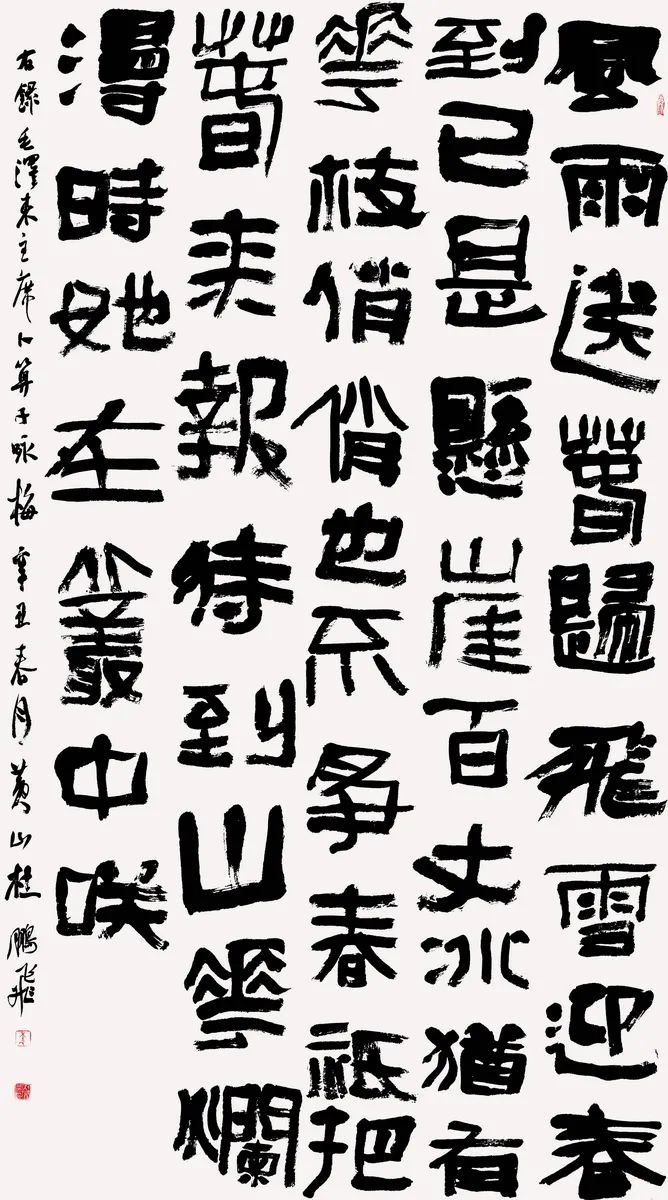 風雨送萅歸飛雪迎春
到已是懸崖百丈冰猶有
花枝俏俏也不爭春祇把
萅來報待到山花爛
漫時她在叢中咲
右録毛澤東主席卜算子咏梅辛丑春月黄山桂鵬飛